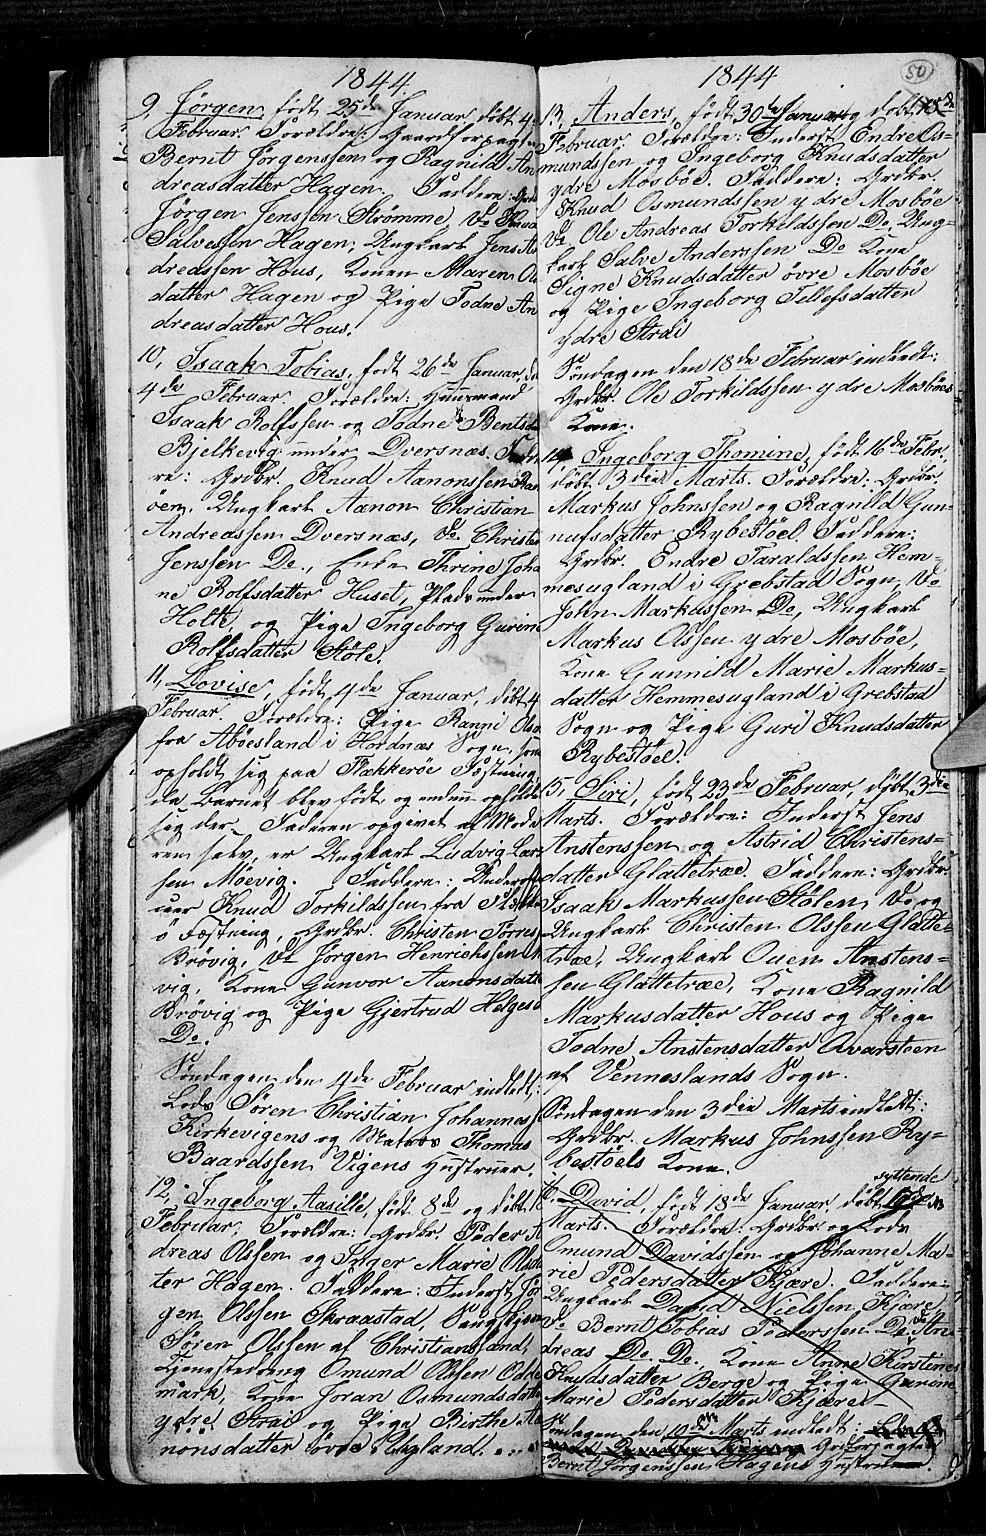 1844.
9, Jørgen, født 25de Januar, døbt 4
Februar. Forældre: Gaardforpagter
Bernt Jørgenssen og Ragnild An
dreasdatter Hagen. Faddere: Grdb
Jørgen Jenssen Strømme, do Knud
Salvessen Hagen, Ungkarl Jens An
dreassen Hous, Konen Maren Ols
datter Hagen og Pige Todne An
dreasdatter Hous.
10, Isaak Tobias, født 26de Januar, dø
4de Februar. Forældre: Huusmand
Isaak Rolfssen og Todne Bentsda
Bjelkevig under Dversnæs. Fadde
re: Grdbr. Knud Aanonssen Ran
öen, Ungkarl Aanon Christian
Andreassen Dversnæs, do Christen
Jenssen Do., Enke Thrine Joha
ne Rolfsdatter Huset, Plads under
Holte, og Pige Ingeborg Gurine
Rolfsdatter Støle.
11, Lovise, født 4de Januar, døbt 4
Februar. Forældre: Pige Ranni Olsd
fra Aböesland i Hordnæs Sogn, som
opholdt sig paa Flækkeröe Fæstning,
da Barnet blev født, og endnu opholde
sig der. Faderen opgevet af Mode
ren selv, er Ungkarl Ludvig Lar
sen Möevig. Faddere: Underof
cier Knud Torkildssen fra Flækk
ö Fæstning, Grdbr. Christen Torres
Brövig, do Jørgen Henrichssen
vig, Kone Gunvor Aanonsdatt
Brövig og Pige Gjertrud Helges
Do.
Søndagen den 4de Februar indledt:
Lods Søren Christian Johannes
Kirkevigens og Matros Thomas
Baardssen Vigens Hustruer.
12, Ingeborg Aasille, født 8de og døbt
Februar. Forældre: Grdbr. Peder A
dreas Olssen og Inger Marie Olsda
ter Hagen. Faddere: Inderst Jør
gen Olssen Skraastad, Vognskjører
Søren Olssen af Christianssand,
Tjenestedreng Omund Olssen Odde
mark, Kone Joran Osmundsdatte
ydre Strai og Pige Birthe A
nonsdatter övre Ugland.
50
1844
13, Anders, født 30te Januar og døbt 18de
Februar. Forældre: Inderst Endre Os
mundssen og Ingeborg Knudsdatter
ydre Mosböe. Faddere: Grdbr.
Knud Osmundssen ydre Mosböe
do Ole Andreas Torkildssen Do, Ung-
karl Salve Anderssen Do Kone
Signe Knudsdatter övre Mosböe
og Pige Ingeborg Tellefsdatter
ydre Strai
Søndagen den 18de Februar indledt:
Grdbr. Ole Torkildssen ydre Mosböes
Kone.
14, Ingeborg Thomine, født 16de Febr.
døbt 3die Marts. Forældre: Grdbr.
Markus Johnssen og Ragnild Gun-
nufsdatter Rybestöel. Faddere:
Grdbr. Endre Taraldssen Hem-
mesugland i Grebstad Sogn, do
John Markussen Do, Ungkarl
Markus Olssen ydre Mosböe,
Kone Gunnild Marie Markus-
datter Hemmesugland i Grebstad
Sogn og Pige Guri Knudsdatter
Rybestöel.
15, Siri, født 23de Februar, døbt 3die
Marts. Forældre: Inderst Jens
Anstenssen og Astrid Christens-
datter Glattetræ. Faddere: Grdbr.
Isaak Markussen Stölen, do og
Ungkarl Christen Olssen Glatte-
træ, Ungkarl Ouen Anstens-
sen Glattetræ, Kone Ragnild
Markusdatter Hous og Pige
Todne Anstensdatter Qvarsteen
af Venneslands Sogn.
Søndagen den 3die Marts indledt:
Grdbr. Markus Johnssen Ry-
bestöels Kone.
syttende
16, David, født 18de Januar, døbt
Marts. Forældre: Grdbr. og Lods
Omund Davidssen og Johanne Ma-
rie Pedersdatter Kjære. Faddere:
Ungkarl David Nielssen Kjære,
do Bernt Tobias Pederssen Do, do An-
dreas Do. Do., Kone Anne Kirstine
Knudsdatter Berge og Pige Gurine
Marie Pedersdatter Kjære.
Søndagen den 10de Marts indledt:
Grdforpagter
Bernt Jørgenssen Hagens Hustru.